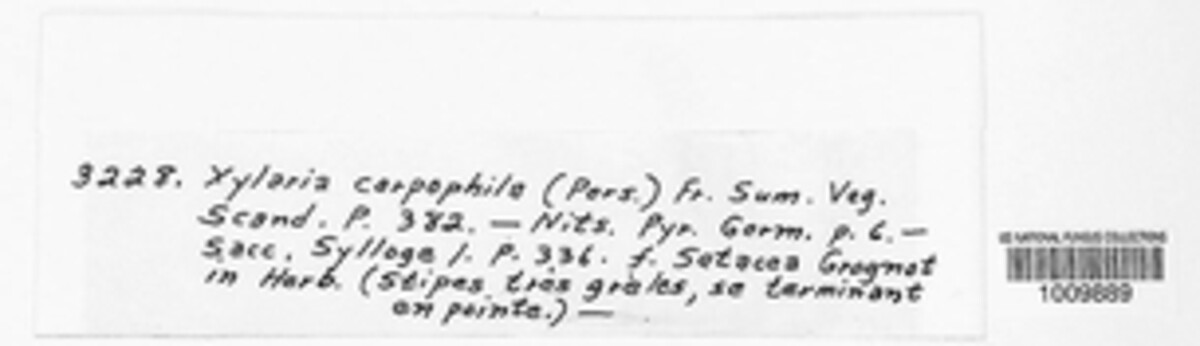 3228. Xylaria carpophila (Pers.) Fr. Sum. Veg.
Scand. P. 382. — Nits. Pyr. Germ. p. 6. —
Sacc. Sylloge I. P. 336. f. Setacea Grognot
in Herb. (Stipes très grêles, se terminant
en pointe.) —
US NATIONAL FUNGUS COLLECTIONS
1009889